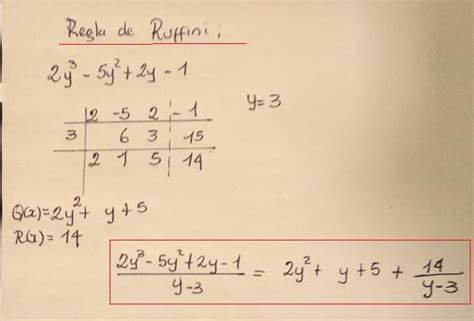 Regla de Ruffini;
2y³ - 5y² + 2y - 1
y = 3
2 -5 2 -1
3 6 3 15
2 1 5 14
Q(x) = 2y² + y + 5
R(x) = 14
2y³ - 5y² + 2y - 1 / y - 3 = 2y² + y + 5 + 14 / y - 3